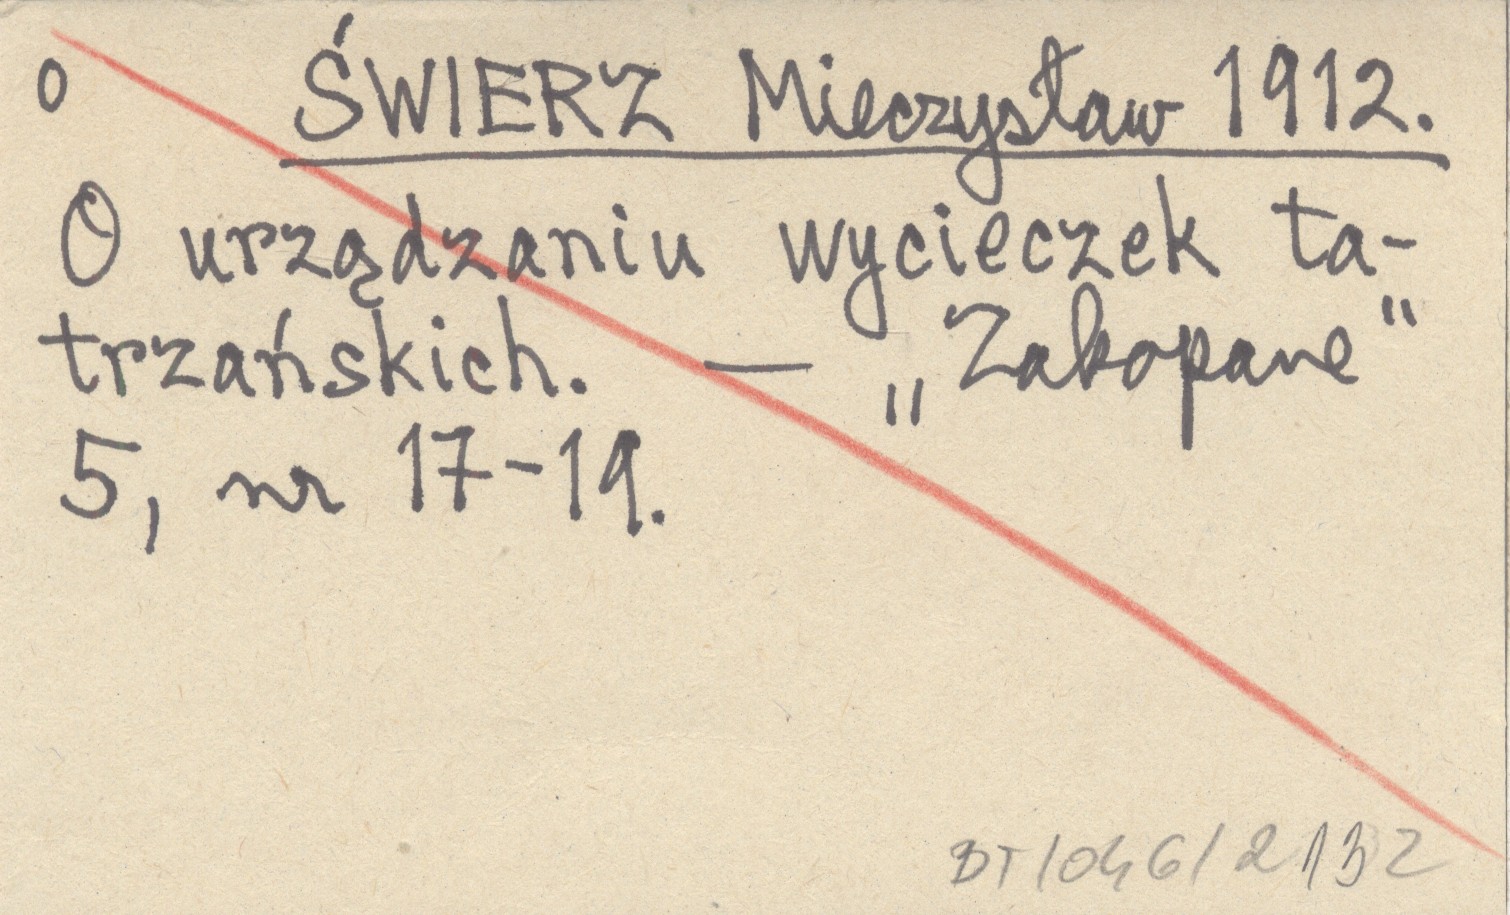 o ŚWIERZ Mieczysław 1912.
O urządzaniu wycieczek ta-
trzańskich. — „Zakopane"
5, nr 17-19.
BT/046/2132